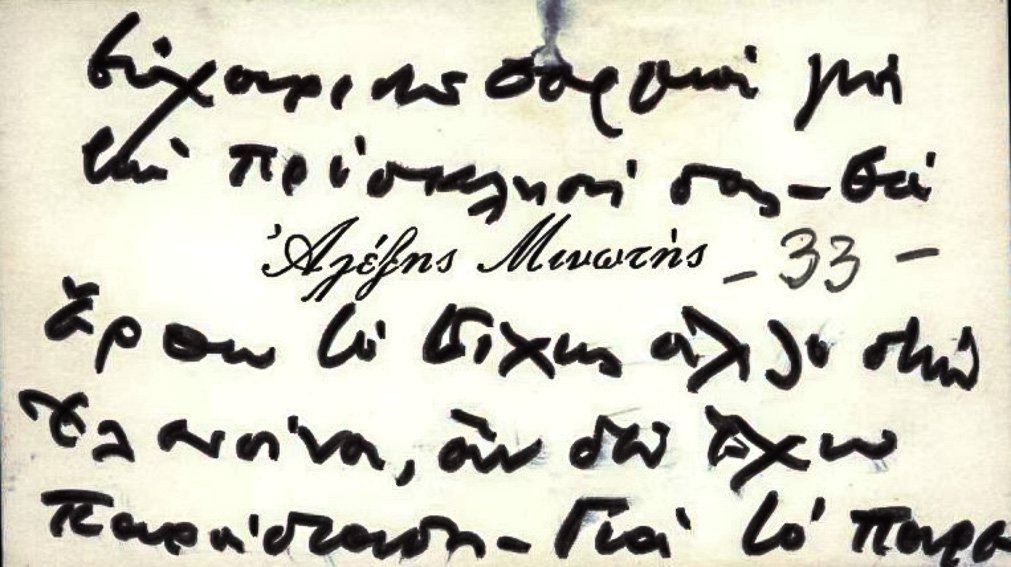 Εὐχαριστῶ θερμά γιά
τήν πρόσκλησή σας – Θά
Ἀλέξης Μινωτής – 33 –
ἔρθω τό δίχως ἄλλο στήν
Ἐλευσίνα, ἄν δέν ἔχω
παράσταση – Γιά τό παρα